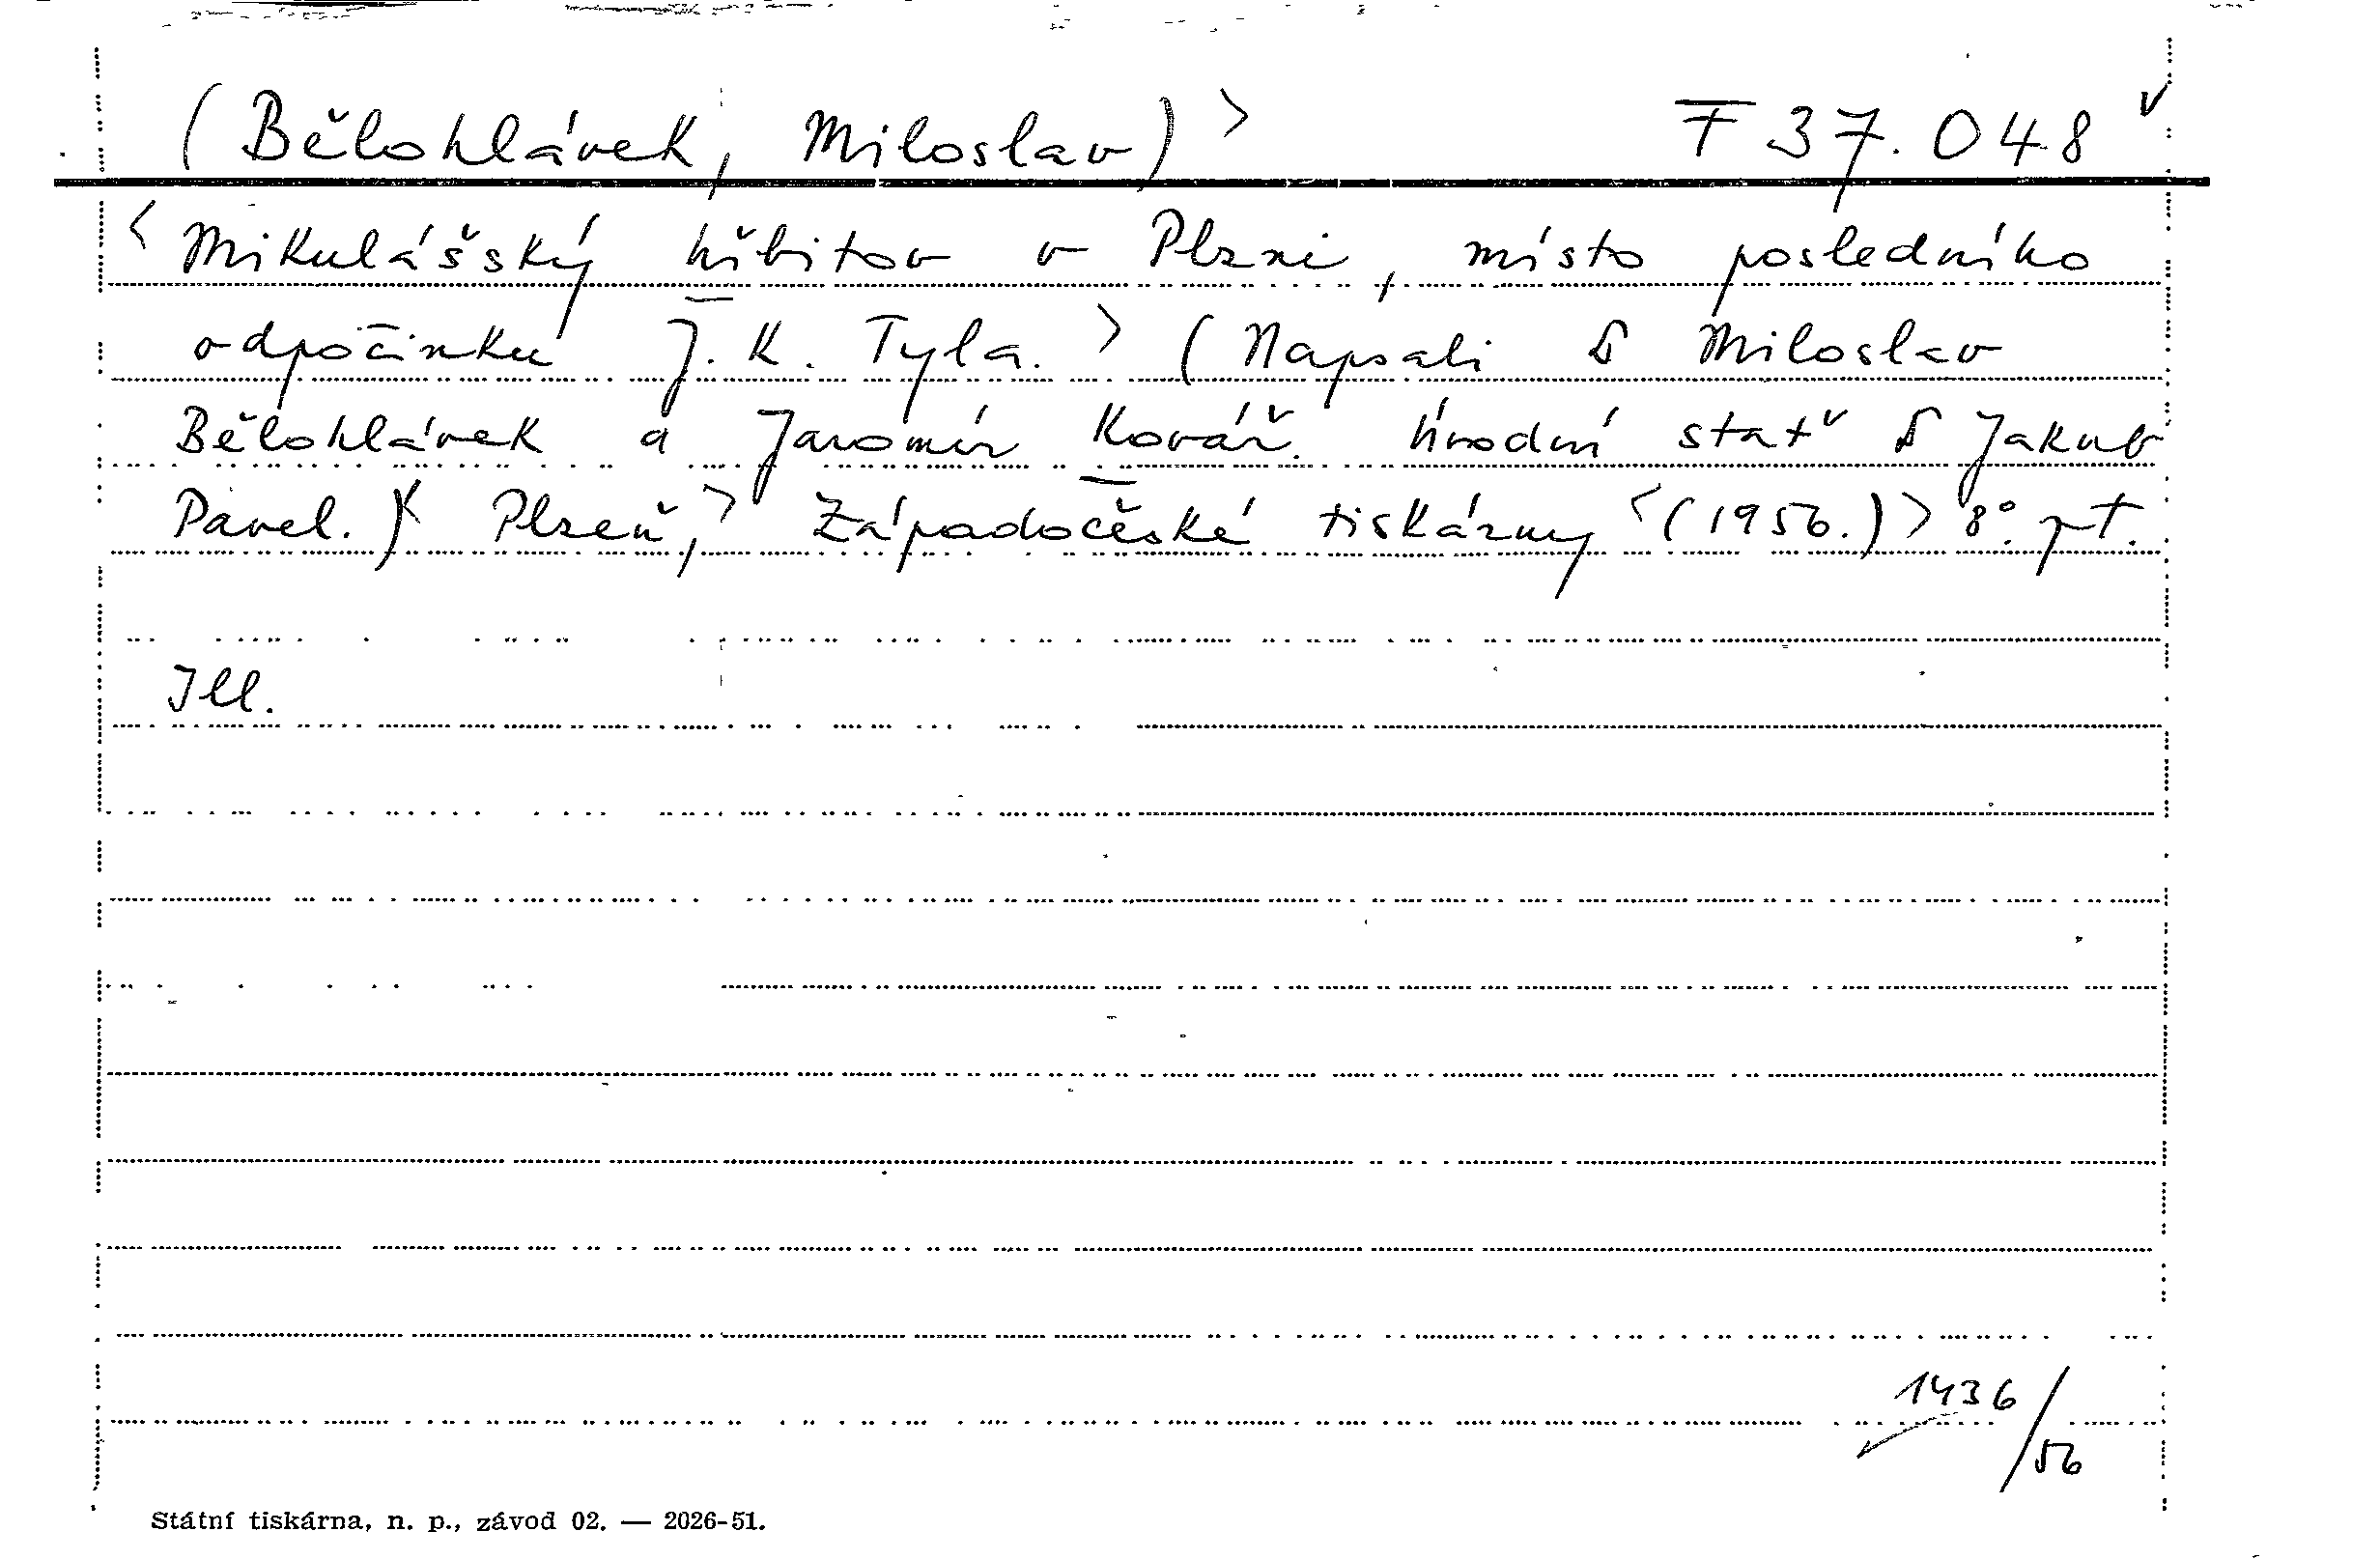 (Bělohlávek, Miloslav) > F 37.048
< Mikulášský hřbitov v Plzni, místo posledního
odpočinku J. K. Tyla. > (Napsali D Miloslav
Bělohlávek a Jaromír Kovář. Úvodní stať D Jakub
Pavel.) < Plzeň, > Západočeské tiskárny < (1956.) > 8°. pt.
Ill.
1436/56
Státní tiskárna, n. p., závod 02. — 2026-51.